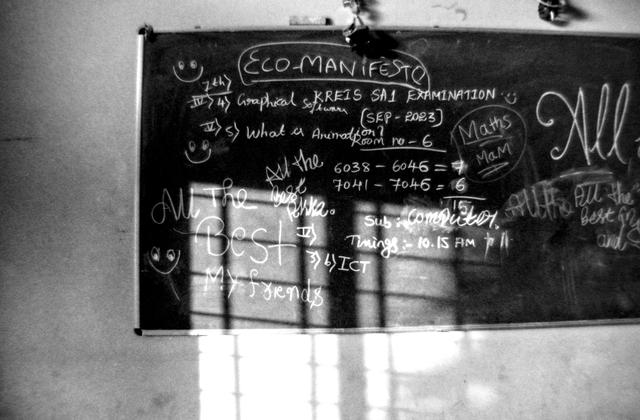 ECO-MANIFESTO
7th)
IV) 4) Graphical Software
KREIS SA1 EXAMINATION
[SEP-2023]
IV) 5) What is Animation?
Room no - 6
Maths
MAM
All
All the
Best
6038 - 6046 = 9
7041 - 7046 = 6
15
All The
Best
My friends
Sub: Computer.
Timings:- 10.15 AM
IV)
3) b) ICT
All the
Best
and